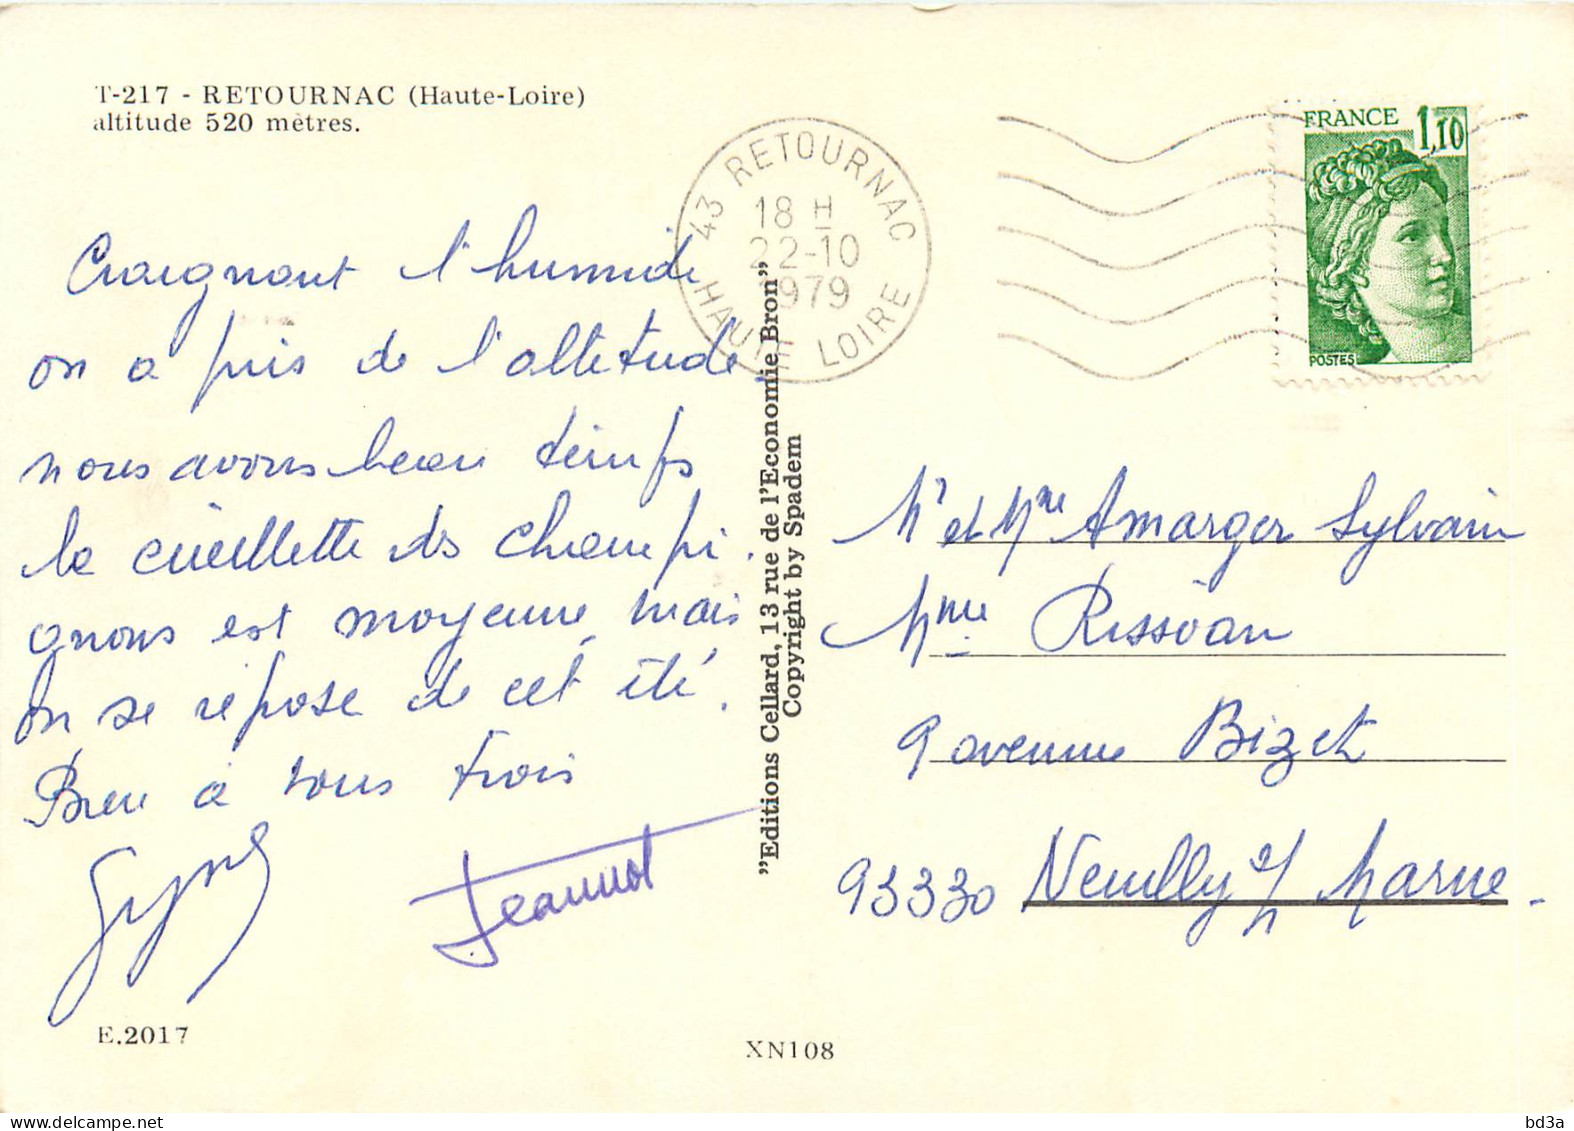 T-217 - RETOURNAC (Haute-Loire)
altitude 520 mètres.
Craignant l'humidi
on a pris de l'altitude,
nous avons beau temps
la cueillette des champi.
gnons est moyenne, mais
on se repose de cet été.
Bien à vous trois
Jeannot
E.2017
43 RETOURNAC
18 H
22-10
1979
HAUTE LOIRE
"Editions Cellard, 13 rue de l'Economie Bron"
Copyright by Spadem
XN108
FRANCE 1,10
POSTES
Mr et Mme Amarger Sylvain
Mme Rissoan
9 avenue Bizet
93330 Neuilly s/ Marne.
bd3a